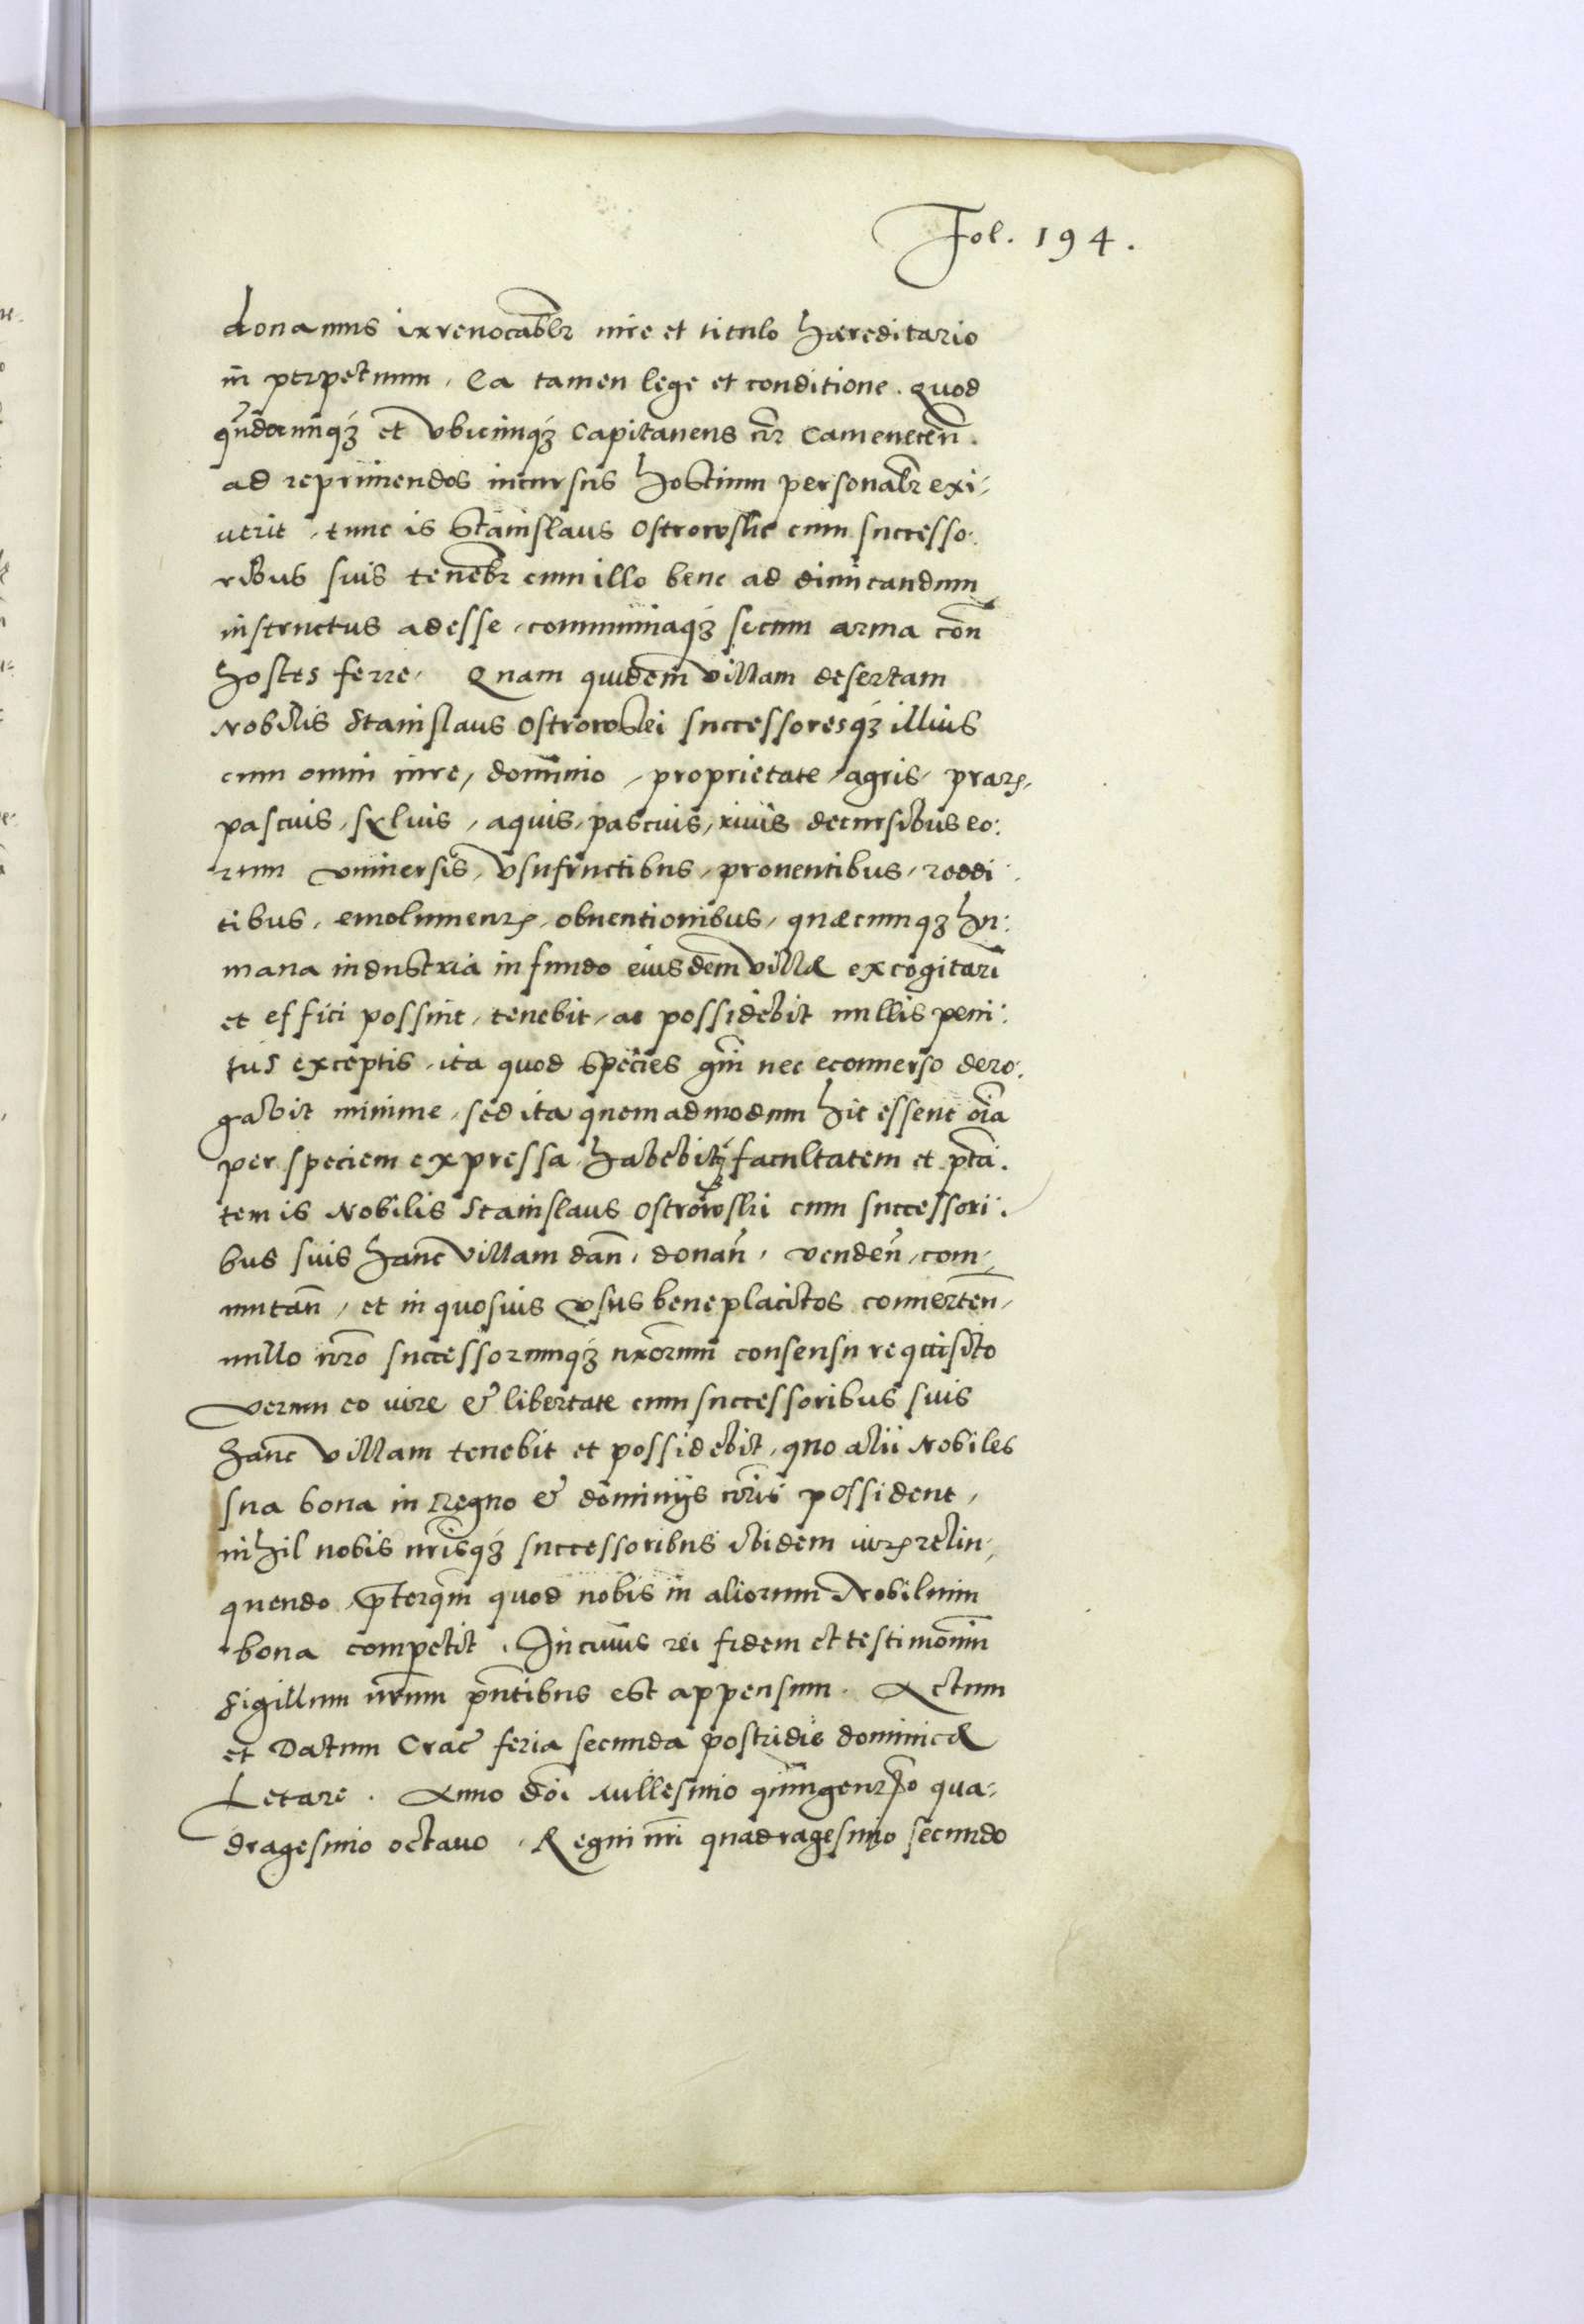 Fol. 194.
donamus irrevocablr iure et titulo hæreditario
in perpetuum. Ea tamen lege et conditione. Quod
qndocunqз et vbicunqз Capitaneus nr̃ Camenecen̄.
ad reprimendos incursus hostium personalr exi-
uerit, tunc is Stanislaus Ostrowskj cum successo.
ribus suis tenebr cum illo bene ad dimicandum
instructus adesse, communiaqз secum arma con̄
hostes ferre. Quam quidem villam desertam
Nobilis Stanislaus Ostrowskj successoresqз illius
cum omni iure, dominio, proprietate, agris, pratꝭ,
pascuis, syluis, aquis, pascuis, riuis decursibus eo:
rum vniuersis, vsufructibus, prouentibus, reddi:
tibus, emolumentꝭ, obuentionibus, quæcunqз hu:
mana industria in fundo eiusdem villæ excogitari
et effici possint, tenebit, ac possidebit nullis peni:
tus exceptis, ita quod species gn̄i nec econuerso dero:
gabit minime, sed ita quemadmodum hic essent oīa
per speciem expressa, habebitqз facultatem et ptā.
tem is Nobilis Stanislaus Ostrowskj cum successori:
bus suis hanc villam dan̄, donan̄, venden̄, com-
mutan̄, et in quosuis vsus beneplacitos conuerten̄,
nullo nr̄o successorumqз nr̄orum consensu requisito
verum eo iure & libertate cum successoribus suis
hanc villam tenebit et possidebit, quo alii Nobiles
sua bona in Regno & dominijs nr̄is possident,
nihil nobis nr̄isqз successoribus ibidem iurꝭ relin-
quendo, p̄terqm̄ quod nobis in aliorum Nobilium
bona competit. In cuius rei fidem et testimoniū
Sigillum nr̄um pn̄tibus est appensum. Actum
et Datum Crac̄ feria secunda postridie dominicæ
Letare. Anno dōi Millesimo quingentꝭo qua:
dragesimo octauo. Regni nr̄i quadragesimo secundo